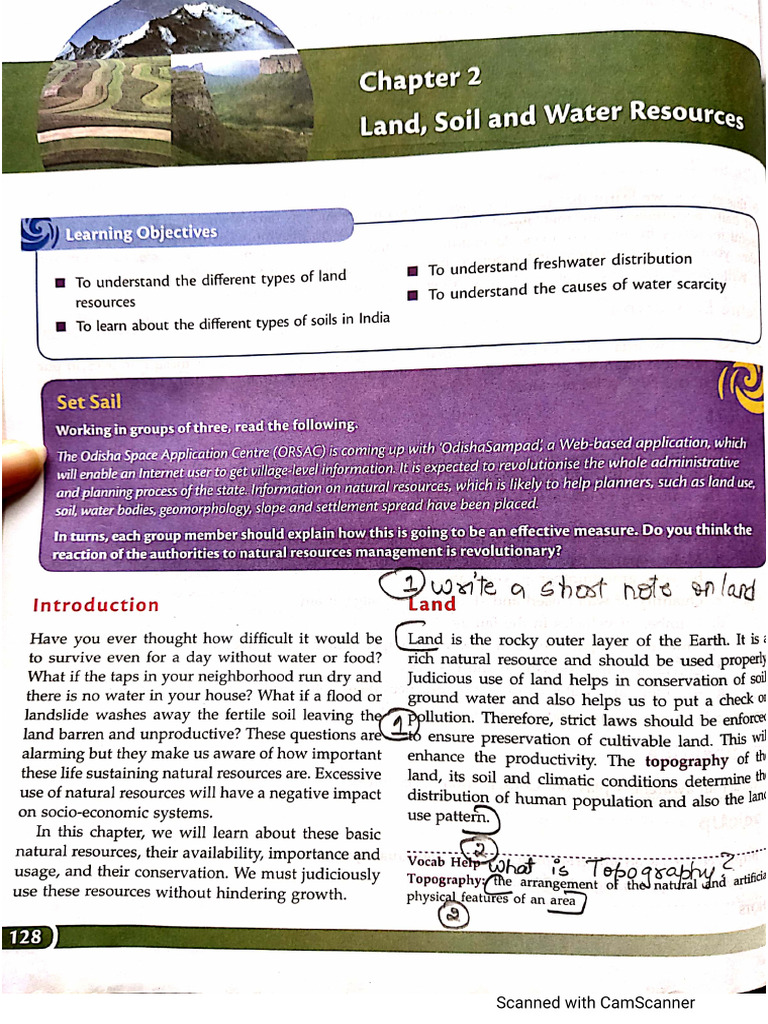 Chapter 2
Land, Soil and Water Resources
Learning Objectives
To understand the different types of land
resources
To learn about the different types of soils in India
To understand freshwater distribution
To understand the causes of water scarcity
Set Sail
Working in groups of three, read the following.
The Odisha Space Application Centre (ORSAC) is coming up with 'OdishaSampad', a Web-based application, which
will enable an Internet user to get village-level information. It is expected to revolutionise the whole administrative
and planning process of the state. Information on natural resources, which is likely to help planners, such as land use,
soil, water bodies, geomorphology, slope and settlement spread have been placed.
In turns, each group member should explain how this is going to be an effective measure. Do you think the
reaction of the authorities to natural resources management is revolutionary?
Introduction
Have you ever thought how difficult it would be
to survive even for a day without water or food?
What if the taps in your neighborhood run dry and
there is no water in your house? What if a flood or
landslide washes away the fertile soil leaving the
land barren and unproductive? These questions are
alarming but they make us aware of how important
these life sustaining natural resources are. Excessive
use of natural resources will have a negative impact
on socio-economic systems.
In this chapter, we will learn about these basic
natural resources, their availability, importance and
usage, and their conservation. We must judiciously
use these resources without hindering growth.
1 Write a short note on land
Land
Land is the rocky outer layer of the Earth. It is a
rich natural resource and should be used properly
Judicious use of land helps in conservation of soil
ground water and also helps us to put a check on
1 pollution. Therefore, strict laws should be enforced
to ensure preservation of cultivable land. This will
enhance the productivity. The topography of the
land, its soil and climatic conditions determine the
distribution of human population and also the land
use pattern.
2
Vocab Help What is Topography?
Topography: the arrangement of the natural and artificia
physical features of an area
2
128
Scanned with CamScanner